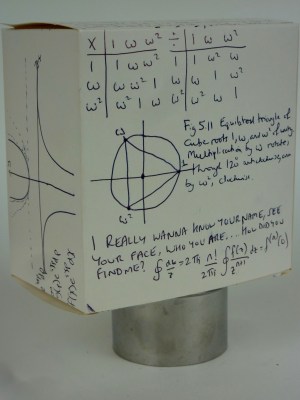 X | 1 ω ω² ÷ | 1 ω ω²
1 | 1 ω ω² 1 | 1 ω² ω
ω | ω ω² 1 ω | ω 1 ω²
ω² | ω² 1 ω ω² | ω² ω 1
Fig 5.11 Equilateral triangle of
cube roots 1, ω, and ω² of unity
Multiplication by ω rotates
through 120° anticlockwise,
by ω², clockwise.
ω
ω²
I REALLY WANNA KNOW YOUR NAME, SEE
YOUR FACE, WHO YOU ARE... HOW DID YOU
FIND ME? ∮ dz/z = 2πi n!/2πi ∮ f(z)/zⁿ⁺¹ dz = f⁽ⁿ⁾(0)